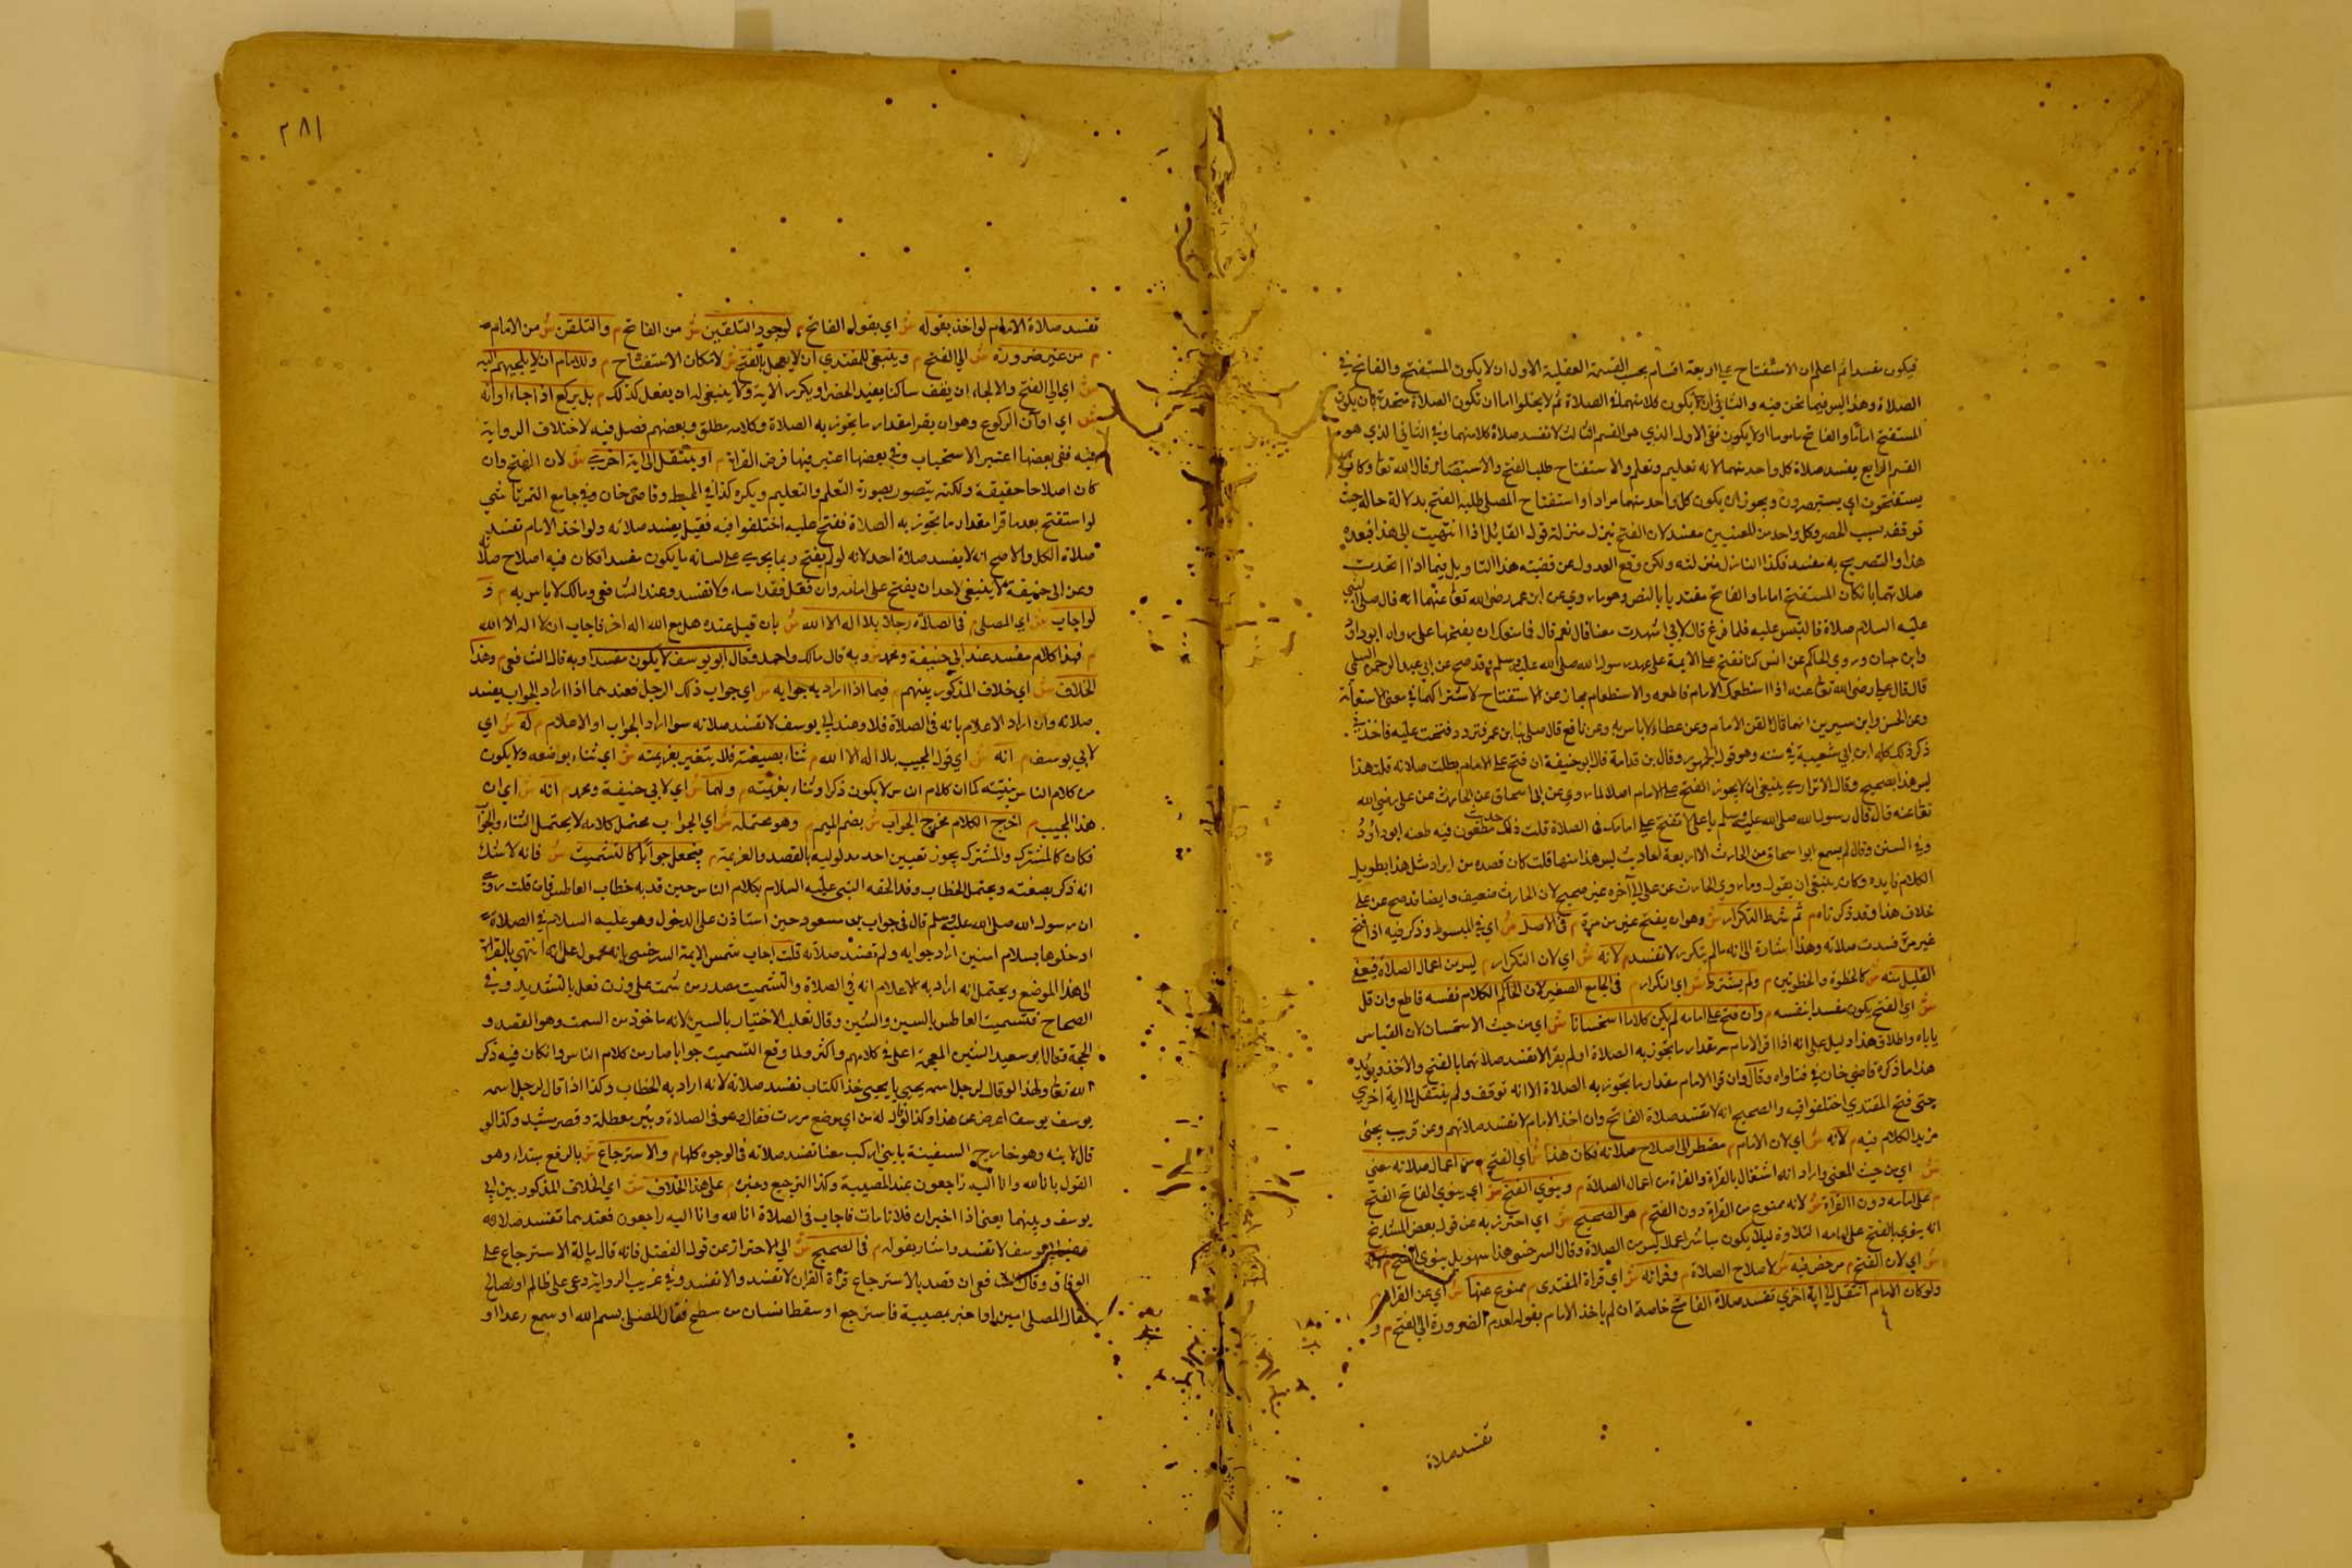 فيكون مفسدا ثم اعلم ان الاستفتاح على اربعة اقسام بحسب القسمة العقلية الاول ان لا يكون المستفتح والفاتح في
الصلاة وهذا ليس فيما نحن فيه والثاني ان لا يكون كلاهما في الصلاة ثم لا يخلوا اما ان تكون الصلاة متحدة بان يكون
المستفتح اماما والفاتح ماموما اولا يكون ففي الاول الذي هو القسم الثالث لا تفسد صلاة كل منهما وفي الثاني الذي هو
القسم الرابع يفسد صلاة كل واحد منهما لانه تعليم وتعلم والاستفتاح طلب الفتح والاستنصار قال الله تعا وكانوا
يستفتحون اي يستنصرون ويجوز ان يكون كل واحد منهما مرادا واستفتاح المصلي طلبه الفتح بدلالة حاله حيث
توقف بسبب الحصر وكل واحد من المعنيين مفسد لان الفتح ينزل منزلة قول القائل اذا انتهيت الى هذا فبعده
هذا والتصريح به مفسد فكذا النازل منزلته ولكن وقع العدول عن قضيته هذا التاويل فيما اذا اتحدت
صلاتهما بان كان المستفتح اماما والفاتح مقتديا بالنص وهو ما روي عن ابن عمر رضي الله تعا عنهما انه قال صلى النبي
عليه السلام صلاة فالتبس عليه فلما فرغ قال لابي اشهدت معنا قال نعم قال فما منعك ان يفتحها علي رواه ابو داود
وابن حبان وروي الحاكم عن انس كنا نفتح على الايمة على عهد رسول الله صلى الله عليه وسلم وقد صح عن ابي عبد الرحمن السلمي
قال قال علي رضي الله تعا عنه اذا استطعمك الامام فاطعمه والاستطعام مجاز عن الاستفتاح لاشتراكهما في معنى الاستعانة
وعن الحسن وابن سيرين انهما قالا لقن الامام وعن عطاء لا باس به وعن نافع قال صلى بنا ابن عمر فتردد ففتحت عليه فاخذ
ذكر ذلك كله ابن ابي شعيبة في سننه وهو قول الجمهور وقال بن قدامة قال ابو حنيفة ان فتح على الامام بطلت صلاته قلت هذا
ليس هذا بصحيح وقال الاتراري ينبغي ان لا يجوز الفتح على الامام اصلا لما روي عن ابي اسحاق عن الحارث عن علي رضي الله
تعا عنه قال قال رسول الله صلى الله عليه وسلم يا علي لا تفتح على امامك في الصلاة قلت ذلك حديث مطعون فيه طعنه ابو داود
وفي السنن وقال لم يسمع ابو اسحاق من الحارث الا اربعة احاديث ليس هذا منها قلت كان قصده من ايراد مثل هذا بطويل
الكلام فايده وكان ينبغي ان يقول وما روي الحارث عن علي الى آخره غير صحيح لان الحارث ضعيف وايضا قد صح عن علي
خلاف هذا وقد ذكرناه م ثم شرط التكرار ش وهو ان يفتح غير من مرة م في الاصل ش اي في المبسوط وذكر فيه اذا فتح
غير مرة فسدت صلاته وهذا اشارة الى انه مالم يتكرر لا تفسد م لانه ش اي لان التكرار م ليس من اعمال الصلاة فيعفى
القليل منه ش كالخطوة والخطوتين م ولم يشترط ش اي التكرار م في الجامع الصغير لان الكلام نفسه قاطع وان قل
ش اي الفتح يكون مفسدا بنفسه م وان فتح على امامه لم يكن كلاما استحسانا ش اي من حيث الاستحسان لان القياس
ياباه واطلاق هذا دليل على انه اذا قرا الامام مقدار ما يجوز به الصلاة او لم يقرا لا تفسد صلاتهما بالفتح والاخذ ويؤيد
هذا ما ذكره قاضي خان في فتاواه وقال وان قرا الامام مقدار ما يجوز به الصلاة الا انه توقف ولم ينتقل الى اية اخري
حتى فتح المقتدي اختلفوا فيه والصحيح انه لا تفسد صلاة الفاتح وان اخذ الامام لا تفسد صلاتهم وعن قريب يجئ
مزيد الكلام فيه م لانه ش اي لان الامام م مضطر الى اصلاح صلاته فكان هذا ش اي الفتح م من اعمال صلاته معني
ش اي من حيث المعني واراد انه اشتغال بالقراة والقراة من اعمال الصلاة م وينوي الفتح ش اي ينوي الفاتح الفتح
م على امامه دون القراة ش لانه ممنوع من القراة دون الفتح م هو الصحيح ش اي احترز به عن قول بعض المشايخ
انه ينوي بالفتح على امامه التلاوة ليلا يكون مباشرا عملا ليس من الصلاة وقال السرخسي هذا سهو بل ينوي الفتح م لانه
ش اي لان الفتح م مرخص فيه ش لاصلاح الصلاة م وقراته ش اي قراة المقتدي م ممنوع عنها ش اي عن القراة م
ولو كان الامام انتقل الى اية اخري تفسد صلاة الفاتح خاصة ان لم ياخذ الامام بقوله لعدم الضرورة الى الفتح م و
تفسد صلاة
٢٨١
تفسد صلاة الامام لو اخذ بقوله ش اي بقول الفاتح م لوجود التلقين ش من الفاتح م والتلقن ش من الامام
م من غير ضرورة ش الى الفتح م وينبغي للمقتدي ان لا يعجل بالفتح ش لامكان الاستفتاح م وللامام ان لا يلجيهم اليه
ش اي الى الفتح والالجاء ان يقف ساكنا بعد الحصر او يكرر الاية ولا ينبغي له ان يفعل كذلك م بل يركع اذا جاء اوانه
ش اي اوان الركوع وهو ان يقرا مقدار ما يجوز به الصلاة وكلامه مطلق وبعضهم فصل فيه لاختلاف الرواية
فيه ففي بعضها اعتبر الاستحباب وفي بعضها اعتبر فيها فرض القراة م او ينتقل الى اية اخرى ش لان الفتح وان
كان اصلاحا حقيقة ولكنه يتصور بصورة التعلم والتعليم ويكره كذا في المحيط وقاضي خان وفي جامع التمرتاشي
لو استفتح بعد ما قرا مقدار ما يجوز به الصلاة ففتح عليه اختلفوا فيه فقيل يفسد صلاته ولو اخذ الامام تفسد
صلاة الكل والاصح انه لا يفسد صلاة احد لانه لو لم يفتح ربما يجري على لسانه ما يكون مفسدا فكان فيه اصلاح صلاته
وعن ابي حنيفة لا ينبغي لاحد ان يفتح على امامه وان فعل فقد اساء ولا تفسد وعند الشافعي ومالك لا باس به م و
لو اجاب ش اي المصلي م في الصلاة رجلا بلا اله الا الله ش بان قيل عنده هل مع الله اله اخر فاجاب ان لا اله الا الله
م فهذا كلام مفسد عند ابي حنيفة ومحمد ش وبه قال مالك واحمد وقال ابو يوسف لا يكون مفسدا وبه قال الشافعي م وهذا
الخلاف ش اي خلاف المذكور بينهم م فيما اذا اراد به جوابه ش اي جواب ذلك الرجل فعندهما اذا اراد الجواب يفسد
صلاته وان اراد الاعلام بانه في الصلاة فلا وعند ابي يوسف لا تفسد صلاته سوا اراد الجواب او الاعلام م له ش اي
لابي يوسف م انه ش اي قول المجيب بلا اله الا الله م ثناء بصيغته فلا يتغير بعزيمته ش اي ثناء بواضعه ولا يكون
من كلام الناس بنيته كما ان كلام الناس لا يكون ذكرا وثناء بنيته م ولهما ش اي لابي حنيفة ومحمد م انه ش اي ان
هذا المجيب م اخرج الكلام مخرج الجواب ش بضم الميم م وهو يحتمله ش اي الجواب يحتمل كلامه لا يحتمل الثناء والجواب
فكان كالمشترك والمشترك يجوز تعيين احد مدلوليه بالقصد والعزيمة م فيجعل جوابا كالتشميت ش فانه لا شك
انه ذكر بصيغته ويحتمل الخطاب وقد الحقه النبي عليه السلام بكلام الناس حين قصد به خطاب العاطس فان قلت روي
ان رسول الله صلى الله عليه وسلم قال في جواب بن مسعود حين استاذن على الدخول وهو عليه السلام في الصلاة
ادخلوها بسلام امنين اراد جوابه ولم تفسد صلاته قلت اجاب شمس الايمة السرخسي بانه محمول على انه انتهي بالقراة
الى هذا الموضع ويحتمل انه اراد به الاعلام انه في الصلاة والتشميت مصدر من شمت على وزن فعل بالتشديد وفي
الصحاح تشميت العاطس بالسين والشين وقال ثعلب الاختيار بالسين لانه ماخوذ من السمت وهو القصد و
الحجة وقال ابو سعيد الشين المعجمة اعلى في كلامهم واكثر ولما وقع التشميت جوابا صار من كلام الناس وان كان فيه ذكر
الله تعا ولهذا لو قال لرجل اسمه يحيى يا يحيى خذ الكتاب تفسد صلاته لانه اراد به الخطاب وكذا اذا قال لرجل اسمه
يوسف يوسف اعرض عن هذا وكذا لو قال له من اي موضع مررت فقال وهو في الصلاة وبئر معطلة وقصر مشيد وكذا لو
قال لابنه وهو خارج السفينة يا بني اركب معنا تفسد صلاته في الوجوه كلها م والاسترجاع ش بالرفع مبتداء وهو
القول بانا لله وانا اليه راجعون عند المصيبة وكذا الترجيع وخبره م على هذا الخلاف ش اي الخلاف المذكور بين ابي
يوسف وبينهما يعني اذا اخبر ان فلانا مات فاجاب في الصلاة انا لله وانا اليه راجعون فعندهما تفسد صلاته
وعند ابي يوسف لا تفسد واشار بقوله م في الصحيح ش الى الاحتراز عن قول الفضل فانه قال مسالة الاسترجاع على
الوفاق وقال الشافعي ان قصد بالاسترجاع قراة القران لا تفسد والا تفسد وفي غريب الرواية دعى على ظالم او لصالح
فقال المصلي امين او اخبر بمصيبة فاسترجع او سقط انسان من سطح فقال المصلي بسم الله او سمع رعدا او